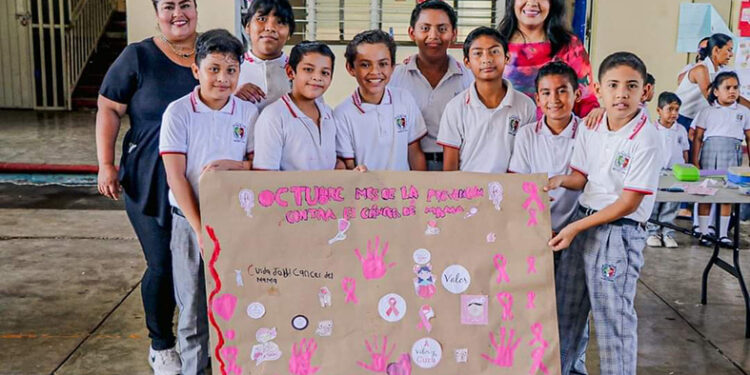 OCTUBRE MES DE LA PREVENCIÓN
CONTRA EL CÁNCER DE MAMA
Cuida del Cancer del
mama
Valor